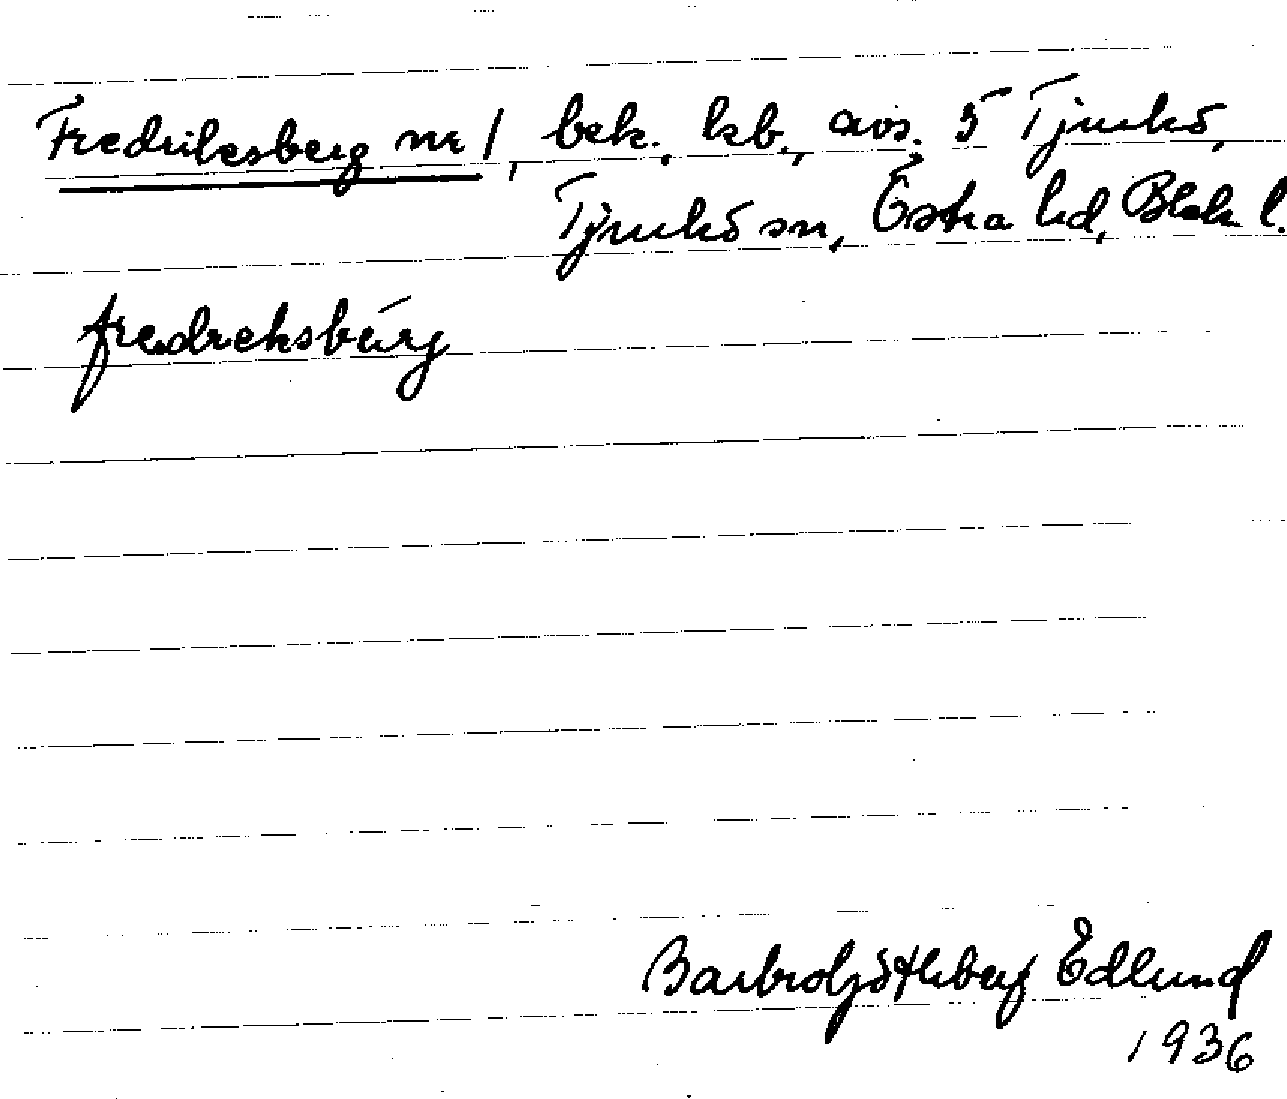 Fredriksberg nr 1, bek., kb., avs. 5 Tjurkö,
Tjurkö sn, Östra hd, Blek l.
fredreksbärg
Barbro Götheberg Edlund
1936